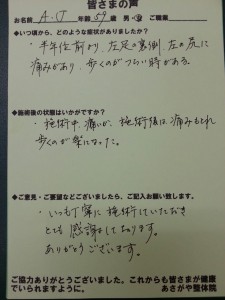 皆さまの声
お名前 A・U 年齢 59 歳 男・女 ご職業
◆いつ頃から、どのような症状がありましたか？
・半年位前より、左足の裏側、左の尻に
痛みがあり、歩くのがつらい時がある。
◆施術後の状態はいかがですか？
・施術中、痛いが、施術後は痛みもとれ
歩くのが楽になった。
◆ご意見・ご要望などございましたら、ご記入お願い致します。
・いつも丁寧に施術していただき
とても感謝をしております。
ありがとうございます。
ご協力ありがとうございました。これからも皆さまが健康
でいられますように。 あさがや整体院